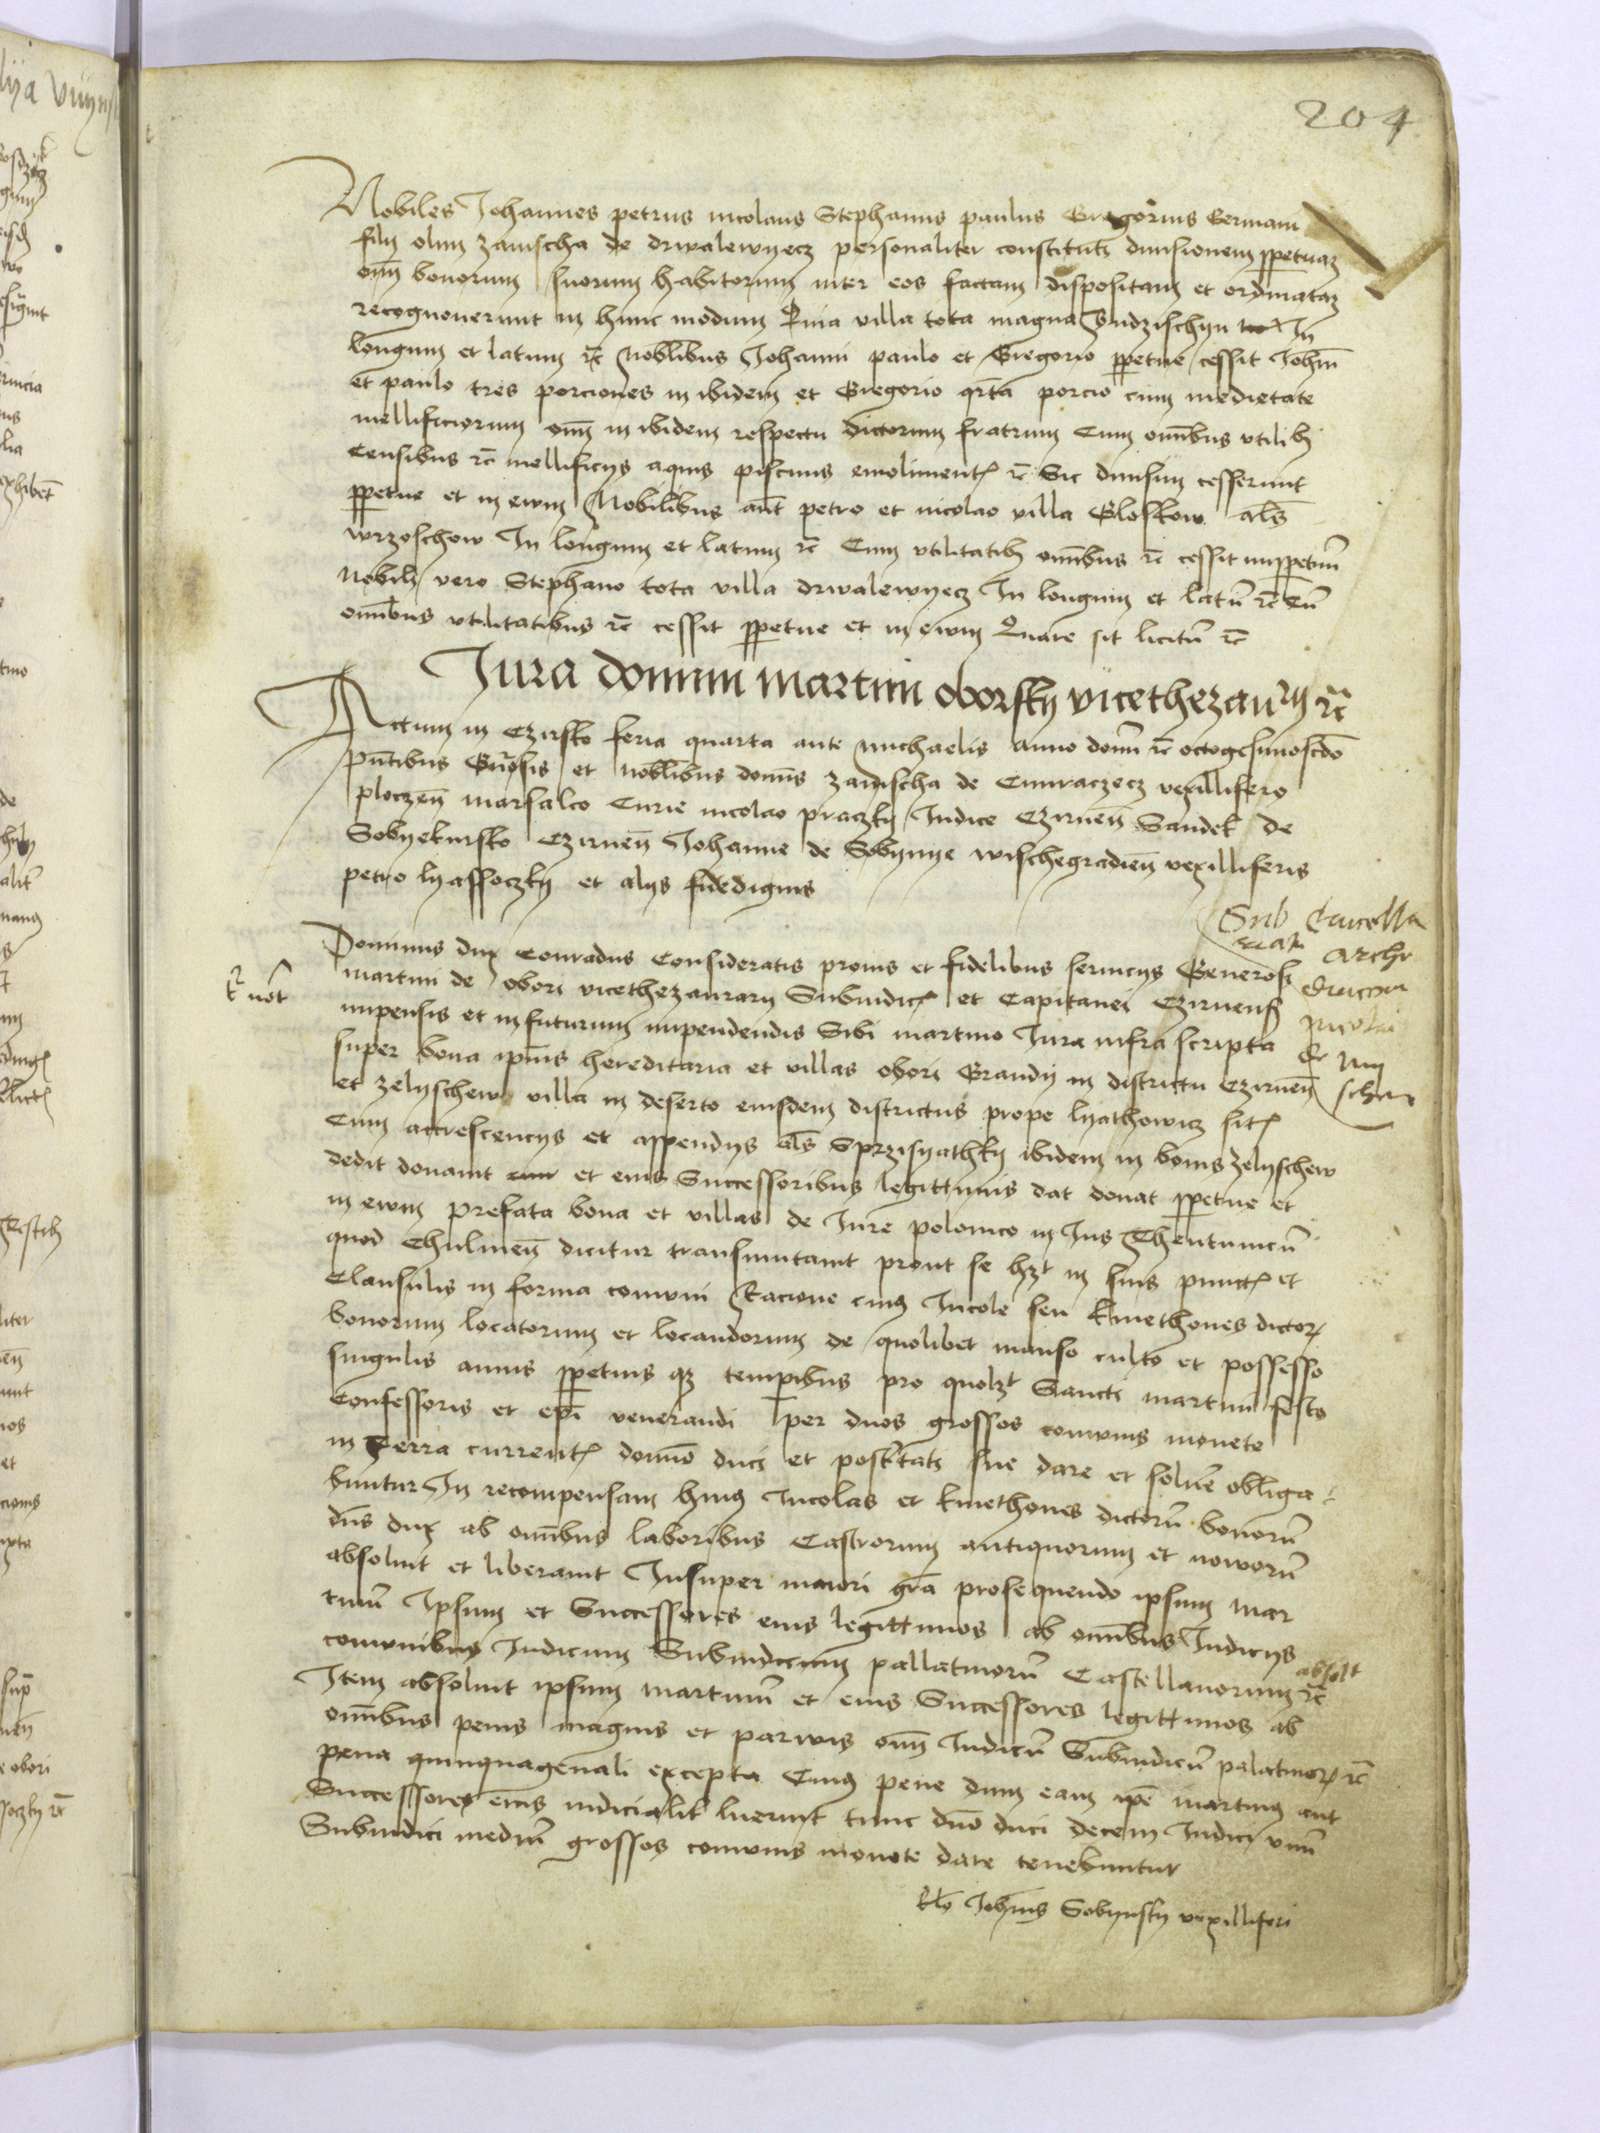 204
Nobiles Johannes petrus nicolaus Stephanus paulus Gregorius Germani
filij olim zauischa de drwalewyecz personaliter constituti diuisionem ppetuaz
oīm bonorum suorum habitorum inter eos factam dispositam et ordinataz
recognouerunt in hunc modum Quia villa tota magna Sudzischyn In
longum et latum rc̄ Nobilibus Johanni paulo et Gregorio ppetue cessit Joh̄ni
et paulo tres porciones in ibidem et Gregorio qrta porcio cum medietate
mellificiorum oīm in ibidem respectu dictorum fratrum Cum omībus vtilib
Censibus rc̄ mellificijs aquis piscinis emolimentꝭ rc̄ Sic diuisim cesserunt
ppetue et in ewm Nobilibus aūt petro et nicolao villa Gloskow als̄
wrzoschow In longum et latum rc̄ Cum vtilitatib omībus rc̄ cessit inppetuū
Nobili vero Stephano tota villa drwalewyecz In longum et latū rc̄ Cū
omībus vtilitatibus rc̄ cessit ppetue et in ewm Quare sit licitū rc̄
Jura domini martini oborsky vicethezaurij rc̄
Actum in Czirsko feria quarta ante michaelis anno domī rc̄ octogesimoscdo
pn̄tibus Gn̄osis et nob̄libus domīs zauischa de Cunraczecz vexillifero
ploczen̄ marsalco Curie nicolao praczky Judice Czirnen̄ Sandek de
Sobyekursko Czirnen̄ Johanne de Sobynye wischegradien̄ vexilliferis
petro lyassoczky et alijs fidedignis
Sub Cancella
archi
nicolai
Dominus dux Conradus Consideratis pronis et fidelibus seruicijs Generosi
martini de obori vicethezaurarij Subiudicꝭ et Capitanei Czirnensꝭ
impensis et in futurum impendendis Sibi martino Jura infra scripta
super bona ipīus hereditaria et villas obori Brandy in districtu Czirnen̄
et zelyschew villa in deserto eiusdem districtus prope lyathowicz sitꝭ
Cum accrescencijs et appendijs als̄ Vprzisyathky ibidem in bonis zelyschew
dedit donauit et eius Successoribus legittimis dat donat ppetue et
in ewm prefata bona et villas de Jure polonico in Jus Theutunicū
quod Chulmen̄ dicitur transmutauit prout se hz̄t in suis punctꝭ et
Clausulis in forma comuni Racione cuiꝰ Jncole seu kmethones dictoꝝ
bonorum locatorum et locandorum de quolibet manso culto et possesso
singulis annis ppetuis qz temporibus pro quolz̄t Sancti martini festo
Confessoris et ep̄i venerandi per duos grossos comunis monete
in Terra currentꝭ domīo duci et post̄tati sue dare et soluē obliga
buntur In recompensam huiꝰ Jncolas et kmethones dictorū bonorū
dn̄s dux ab omībus laboribus Castrorum antiquorum et nouorū
absoluit et liberauit Insuper maiori gr̄a prosequendo ipsum mar
tinū Ipsum et Successores eius legittimos ab omībus Judicijs
comunibus Judicum Subiudicum pallatinorū Castellanorum rc̄ absolt
Item absoluit ipsum martinū et eius Successores legittimos ab
omībus penis magnis et paruis oīm Judicū Subiudicū palatinoꝝ rc̄
pena quinquagenali excepta Cuiꝰ pene dum eam ip̄e martinꝰ aut
Successores eius iudicialit̄ luerint tunc dn̄o duci decem Judici vnū
Subiudici mediū grossos comunis monete dare tenebuntur
Rlo Joh̄nis Sobynsky vexilliferi